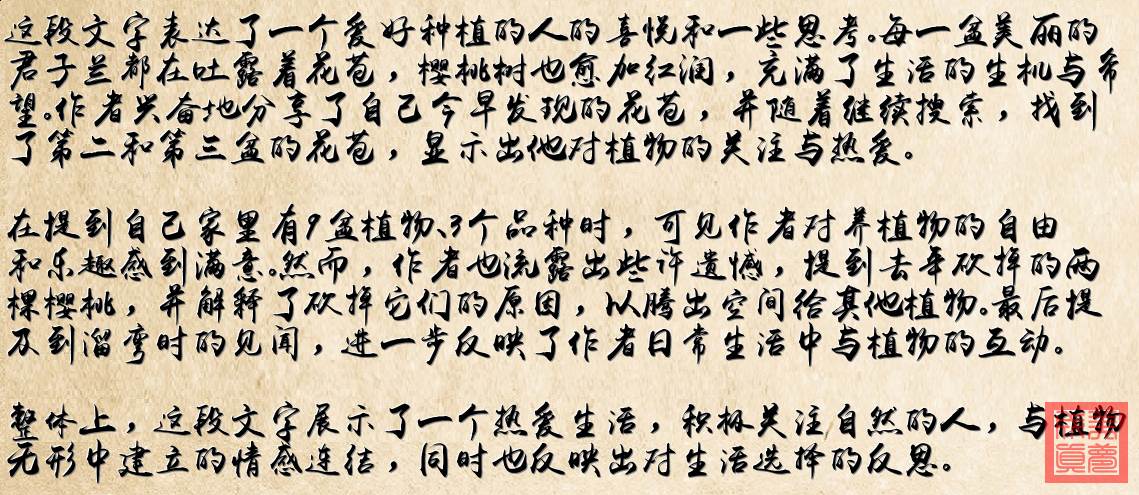 这段文字表达了一个爱好种植的人的喜悦和一些思考。每一盆美丽的
君子兰都在吐露着花苞，樱桃树也愈加红润，充满了生活的生机与希
望。作者兴奋地分享了自己今早发现的花苞，并随着继续搜索，找到
了第二和第三盆的花苞，显示出他对植物的关注与热爱。
在提到自己家里有9盆植物、3个品种时，可见作者对养植物的自由
和乐趣感到满意。然而，作者也流露出些许遗憾，提到去年砍掉的两
棵樱桃，并解释了砍掉它们的原因，以腾出空间给其他植物。最后提
及到溜弯时的见闻，进一步反映了作者日常生活中与植物的互动。
整体上，这段文字展示了一个热爱生活，积极关注自然的人，与植物
无形中建立的情感连结，同时也反映出对生活选择的反思。